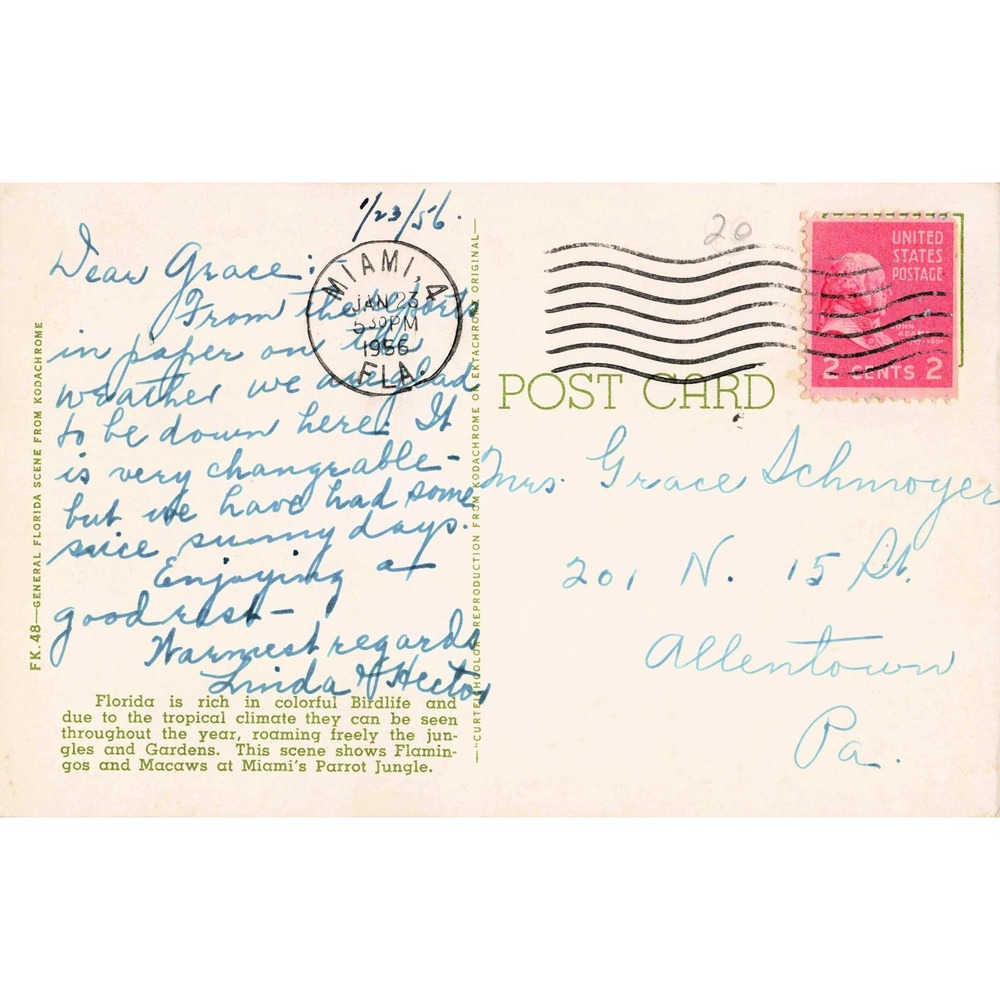 1/23/56.
Dear Grace:-
From the reports
in paper on the
weather we are glad
to be down here. It
is very changeable-
but we have had some
nice sunny days.
Enjoying a
good rest-
Warmest regards
Linda & Hector
Florida is rich in colorful Birdlife and
due to the tropical climate they can be seen
throughout the year, roaming freely the jun-
gles and Gardens. This scene shows Flamin-
gos and Macaws at Miami's Parrot Jungle.
FK. 48—GENERAL FLORIDA SCENE FROM KODACHROME
MIAMI, 4
JAN 23
5 30 PM
1956
FLA.
—"CURTEICHCOLOR" REPRODUCTION FROM KODACHROME OR EKTACHROME ORIGINAL—
20
UNITED
STATES
POSTAGE
JOHN
ADAMS
2 CENTS 2
POST CARD
Mrs. Grace Schmoyer
201 N. 15 St.
Allentown
Pa.